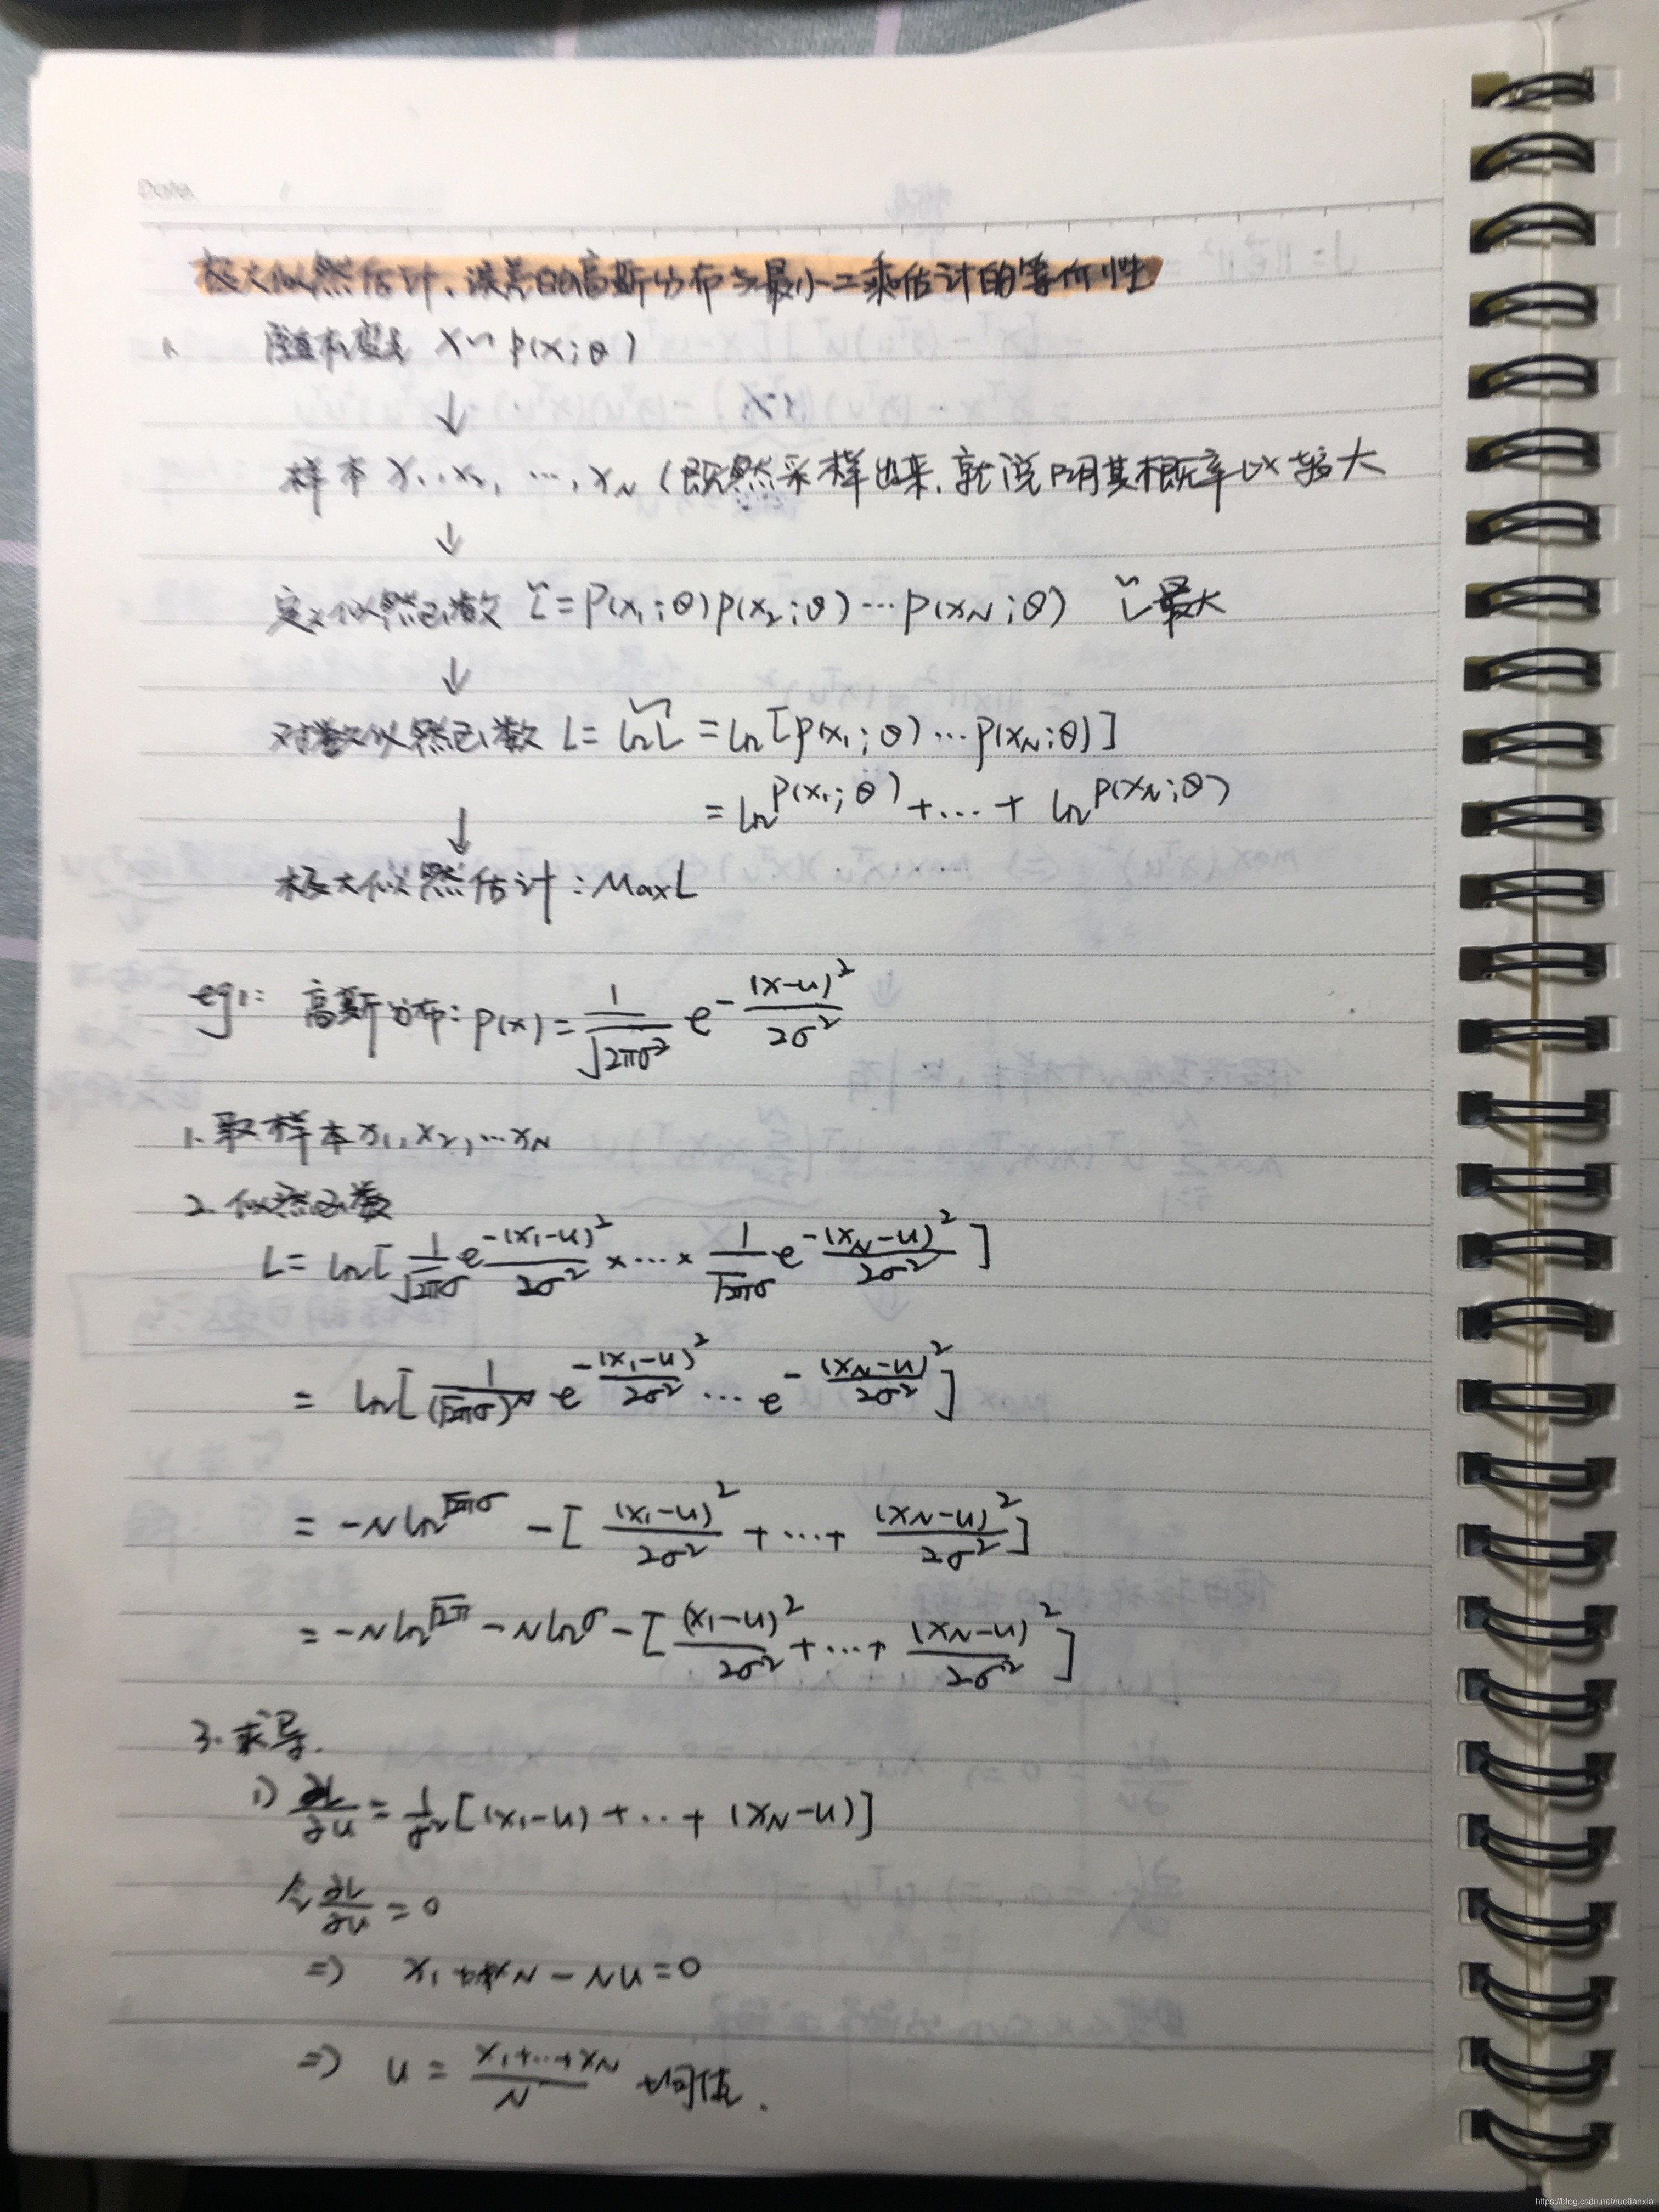 Date.
极大似然估计、误差的高斯分布与最小二乘估计的等价性
1. 随机变量 X~p(x;θ)
↓
样本 x₁,x₂, …,x_N (既然采样出来,就说明其概率比较大
↓
定义似然函数 L̃=p(x₁;θ)p(x₂;θ)…p(x_N;θ) L̃最大
↓
对数似然函数 L=lnL̃ =ln[p(x₁;θ)…p(x_N;θ)]
=ln^{p(x₁;θ)}+…+ ln^{p(x_N;θ)}
↓
极大似然估计:Max L
eg1: 高斯分布: p(x)=\frac{1}{\sqrt{2πσ²}} e^{-\frac{(x-u)²}{2σ²}}
1. 取样本x₁,x₂,…x_N
2. 似然函数
L= ln[\frac{1}{\sqrt{2π}σ}e^{\frac{-(x₁-u)²}{2σ²}}×…×\frac{1}{\sqrt{2π}σ}e^{\frac{-(x_N-u)²}{2σ²}}]
= ln[\frac{1}{(\sqrt{2π}σ)^N} e^{-\frac{(x₁-u)²}{2σ²}}…e^{-\frac{(x_N-u)²}{2σ²}}]
= -N ln^{\sqrt{2π}σ} -[\frac{(x₁-u)²}{2σ²}+…+\frac{(x_N-u)²}{2σ²}]
= -N ln^{\sqrt{2π}} -N ln^σ -[\frac{(x₁-u)²}{2σ²}+…+\frac{(x_N-u)²}{2σ²}]
3. 求导.
1) \frac{∂L}{∂u}=\frac{1}{σ²}[(x₁-u)+…+(x_N-u)]
令\frac{∂L}{∂u}=0
⇒ x₁+…x_N-Nu=0
⇒ u=\frac{x₁+…+x_N}{N} 均值.
https://blog.csdn.net/ruotianxia